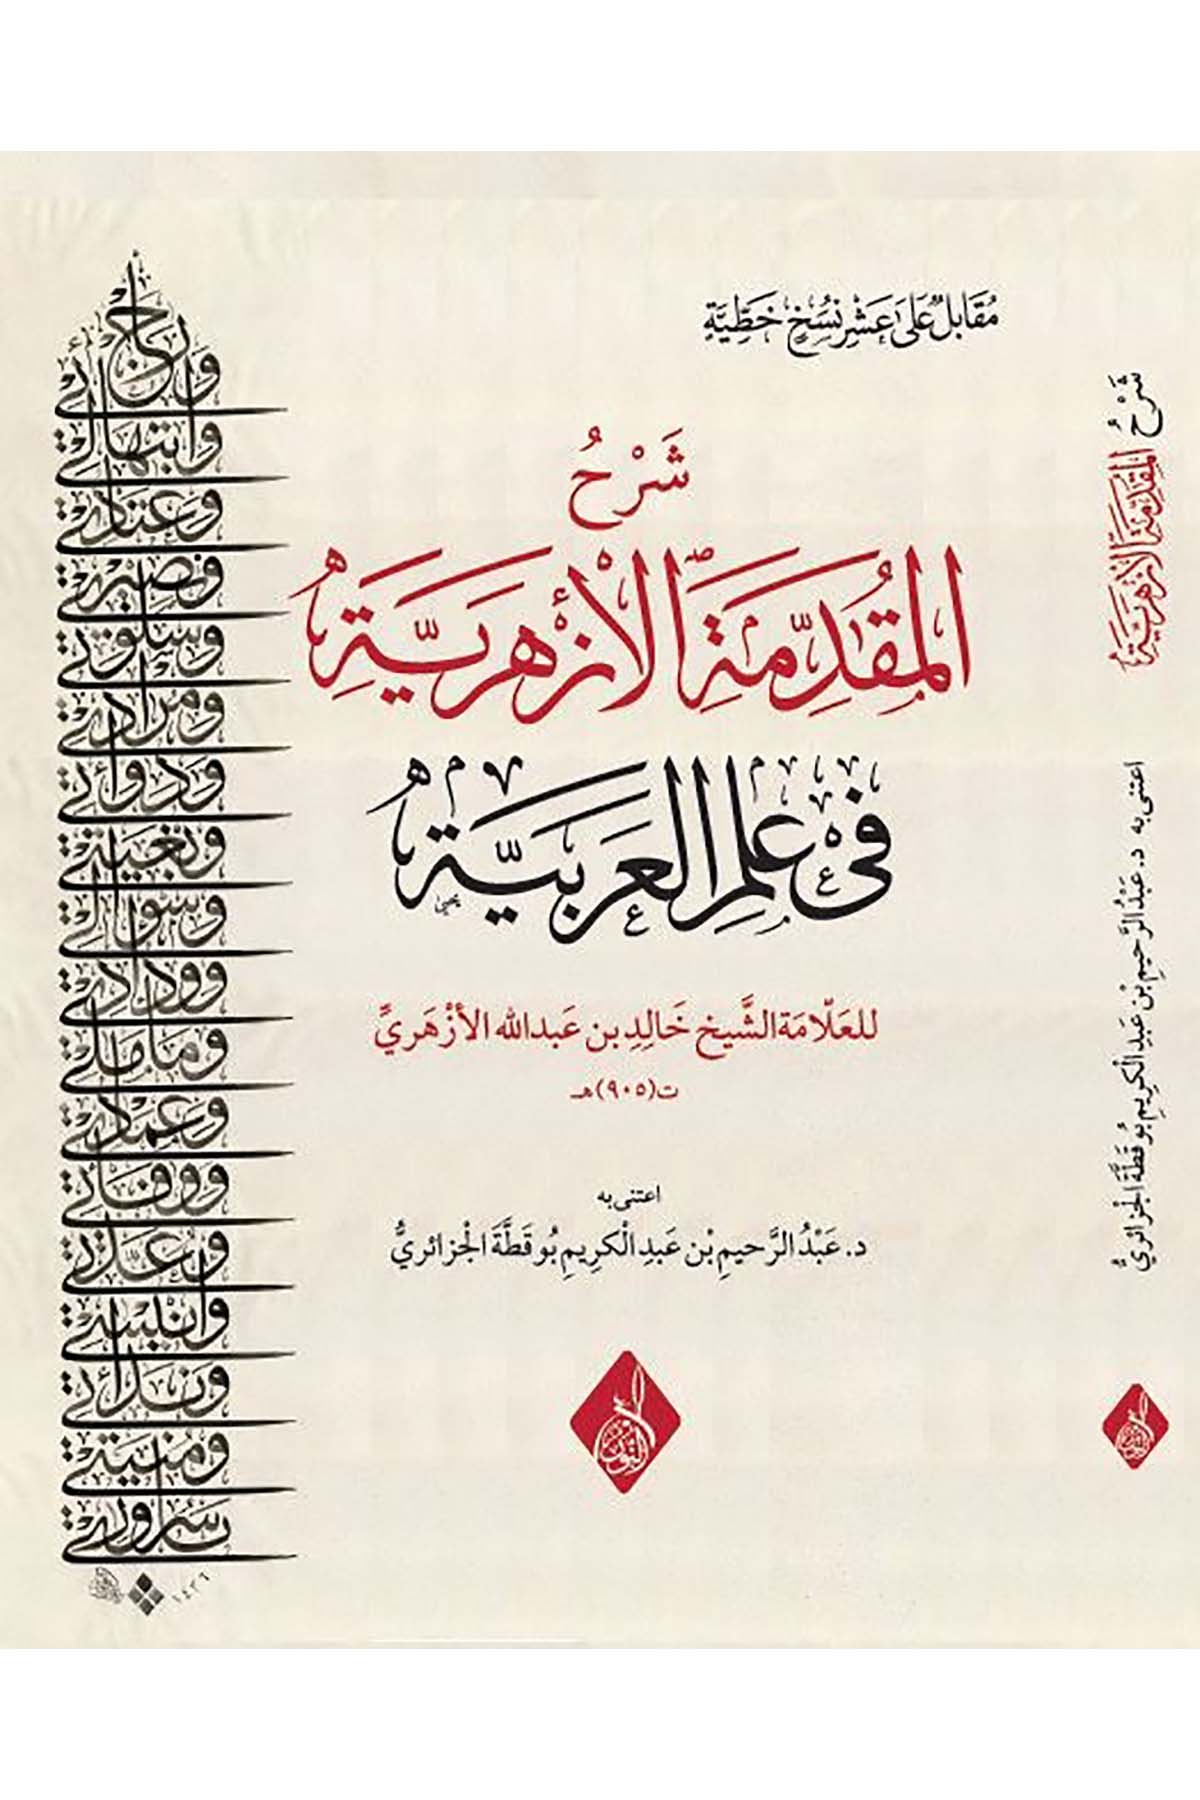 مُقَابَلٌ عَلَىٰ عَشْرِ نُسَخٍ خَطِّيَّةٍ
شَرْحُ
المُقَدِّمَةِ الأَزْهَرِيَّةِ
فِي عِلْمِ العَرَبِيَّةِ
للعَلّامَة الشَّيخ خَالِدِ بن عَبدالله الأزْهَريِّ
ت(٩٠٥)هـ
اعتنى به
د. عَبْدُ الرَّحيمِ بْن عَبدِ الْكَرِيمِ بُوقطَّةَ الْجَزائريُّ
شَرْحُ المُقَدِّمَةِ الأَزْهَرِيَّةِ
اعتنى به د. عَبْدُ الرَّحيمِ بْن عَبدِ الْكَرِيمِ بُوقطَّةَ الْجَزائريُّ
وابتهالي
وعتادي
ومرادي
وسؤالي
وودادي
وعمادي
وندائي
ومنيتي
سروري
١٤٢٦